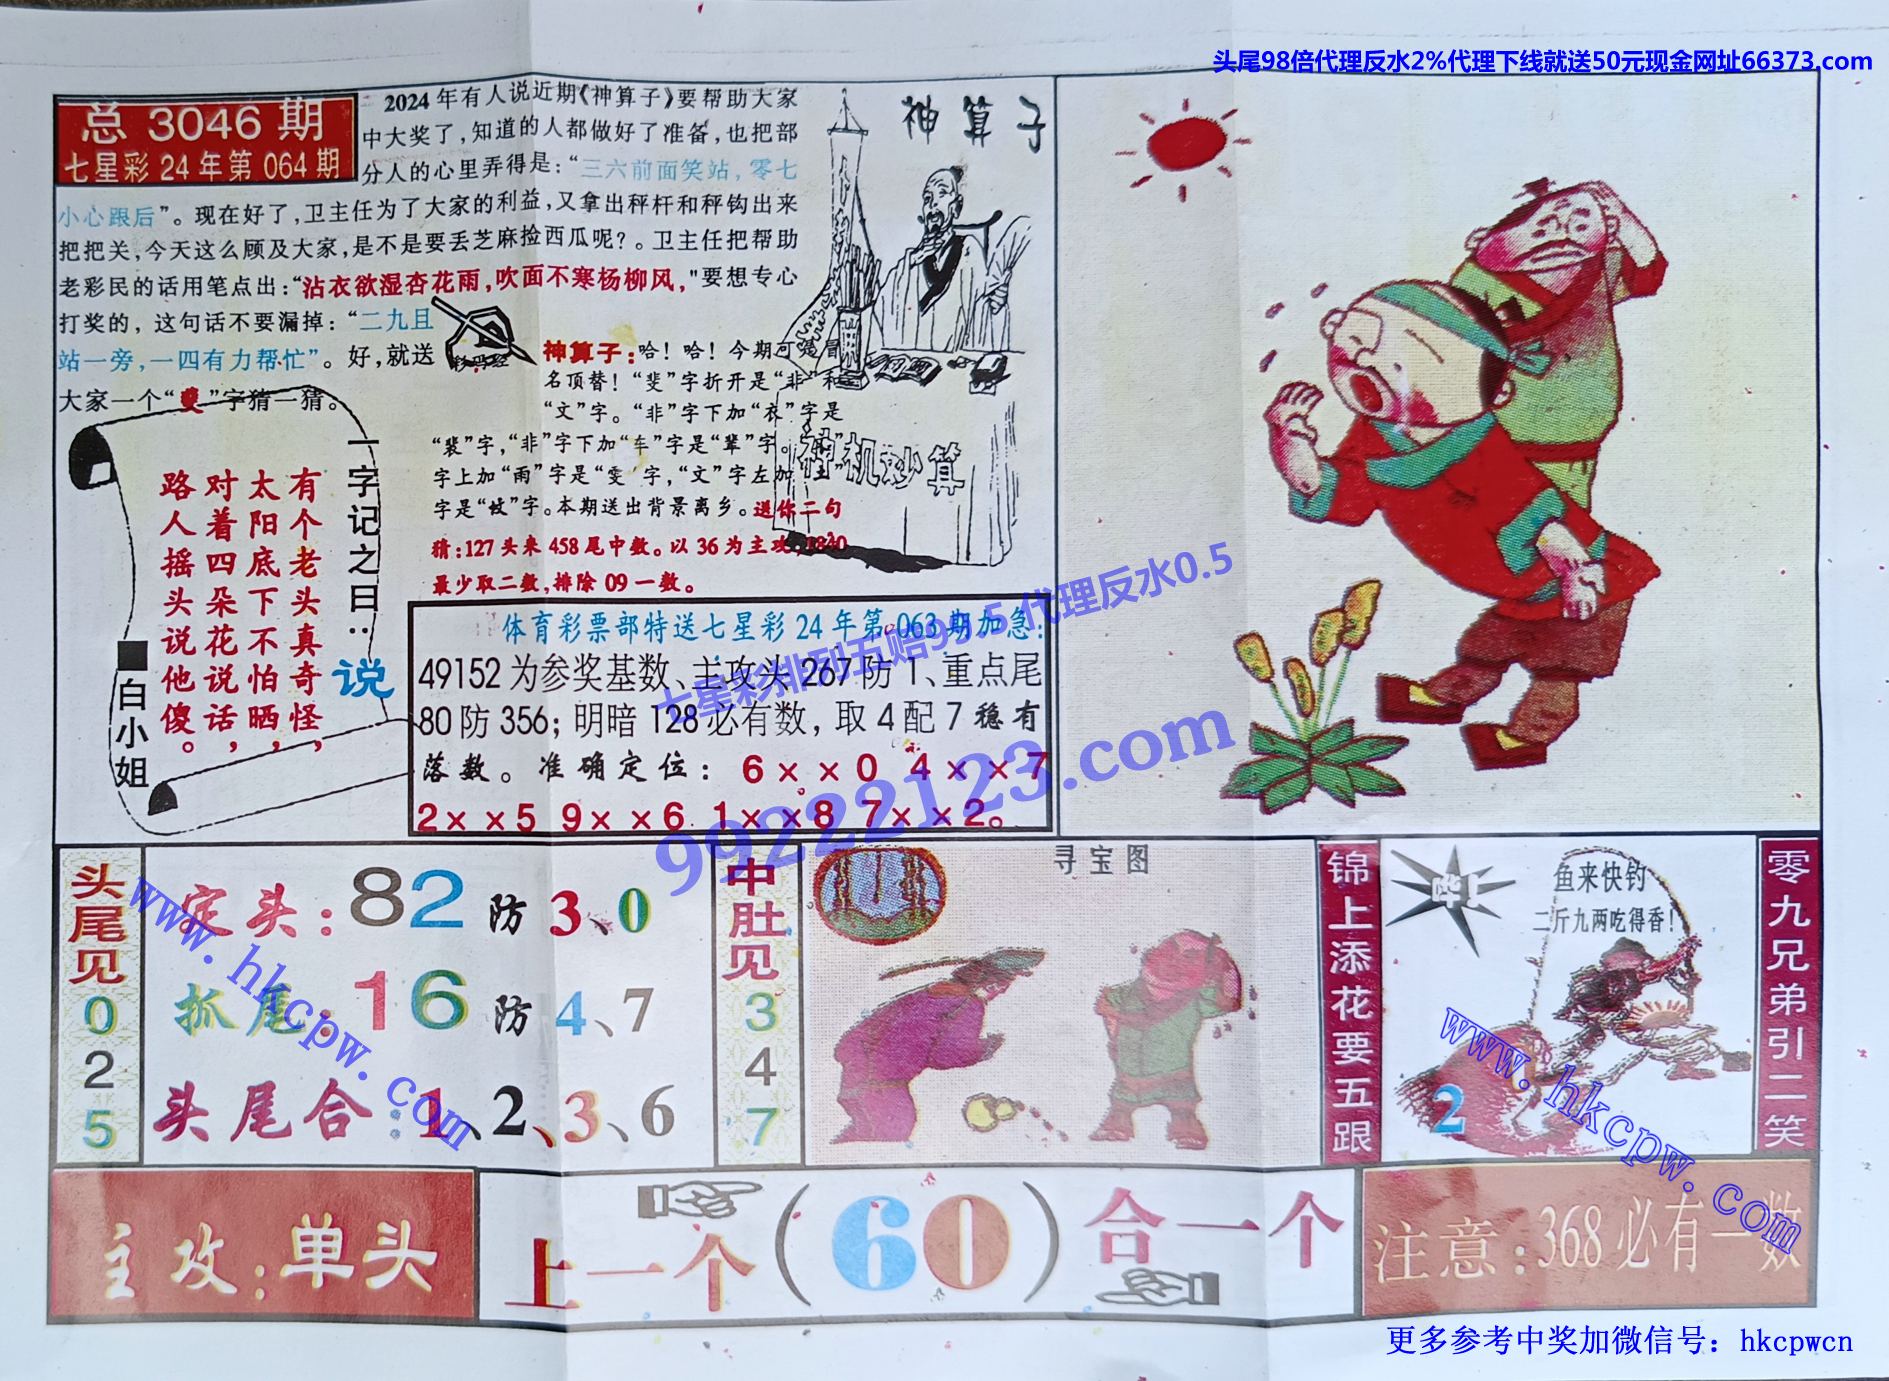 头尾98倍代理反水2%代理下线就送50元现金网址66373.com
总 3046 期
七星彩 24 年第 064 期
2024 年有人说近期《神算子》要帮助大家
中大奖了，知道的人都做好了准备，也把部
分人的心里弄得是：“三六前面笑站，零七
小心跟后”。现在好了，卫主任为了大家的利益，又拿出秤杆和秤钩出来
把把关，今天这么顾及大家，是不是要丢芝麻捡西瓜呢？。卫主任把帮助
老彩民的话用笔点出：“沾衣欲湿杏花雨，吹面不寒杨柳风，"要想专心
打奖的，这句话不要漏掉：“二九且
站一旁，一四有力帮忙”。好，就送
大家一个“斐”字猜一猜。
神算子
神算子：哈！哈！今期可是冒
名顶替！“斐”字折开是“非”和
“文”字。“非”字下加“衣”字是
“裴”字，“非”字下加“车”字是“辈”字。
字上加“雨”字是“雯”字，“文”字左加“土”
字是“坟”字。本期送出背景离乡。送你二句
猜：127 头来 458 尾中数。以 36 为主攻，1840
最少取二数，排除 09 一数。
神机妙算
一字记之曰：说
有个老头真奇怪，
太阳底下不怕晒，
对着四朵花说话，
路人摇头说他傻。
■白小姐
体育彩票部特送七星彩 24 年第 063 期加急：
49152 为参奖基数、主攻头 267 防 1、重点尾
80 防 356；明暗 128 必有数，取 4 配 7 稳有
落数。准确定位：6××0 4××7
2××5 9××6 1××8 7××2。
七星彩排列五赔99.5 代理反水0.5
99222123.com
头尾见
0
2
5
定头：82 防 3、0
抓尾：16 防 4、7
头尾合：1、2、3、6
www.hkcpw.com
中肚见
3
4
7
寻宝图
锦上添花要五跟
哗！
鱼来快钓
二斤九两吃得香！
2
www.hkcpw.com
零九兄弟引二笑
主攻：单头
上一个（60）合一个
注意：368 必有一数
更多参考中奖加微信号：hkcpwcn